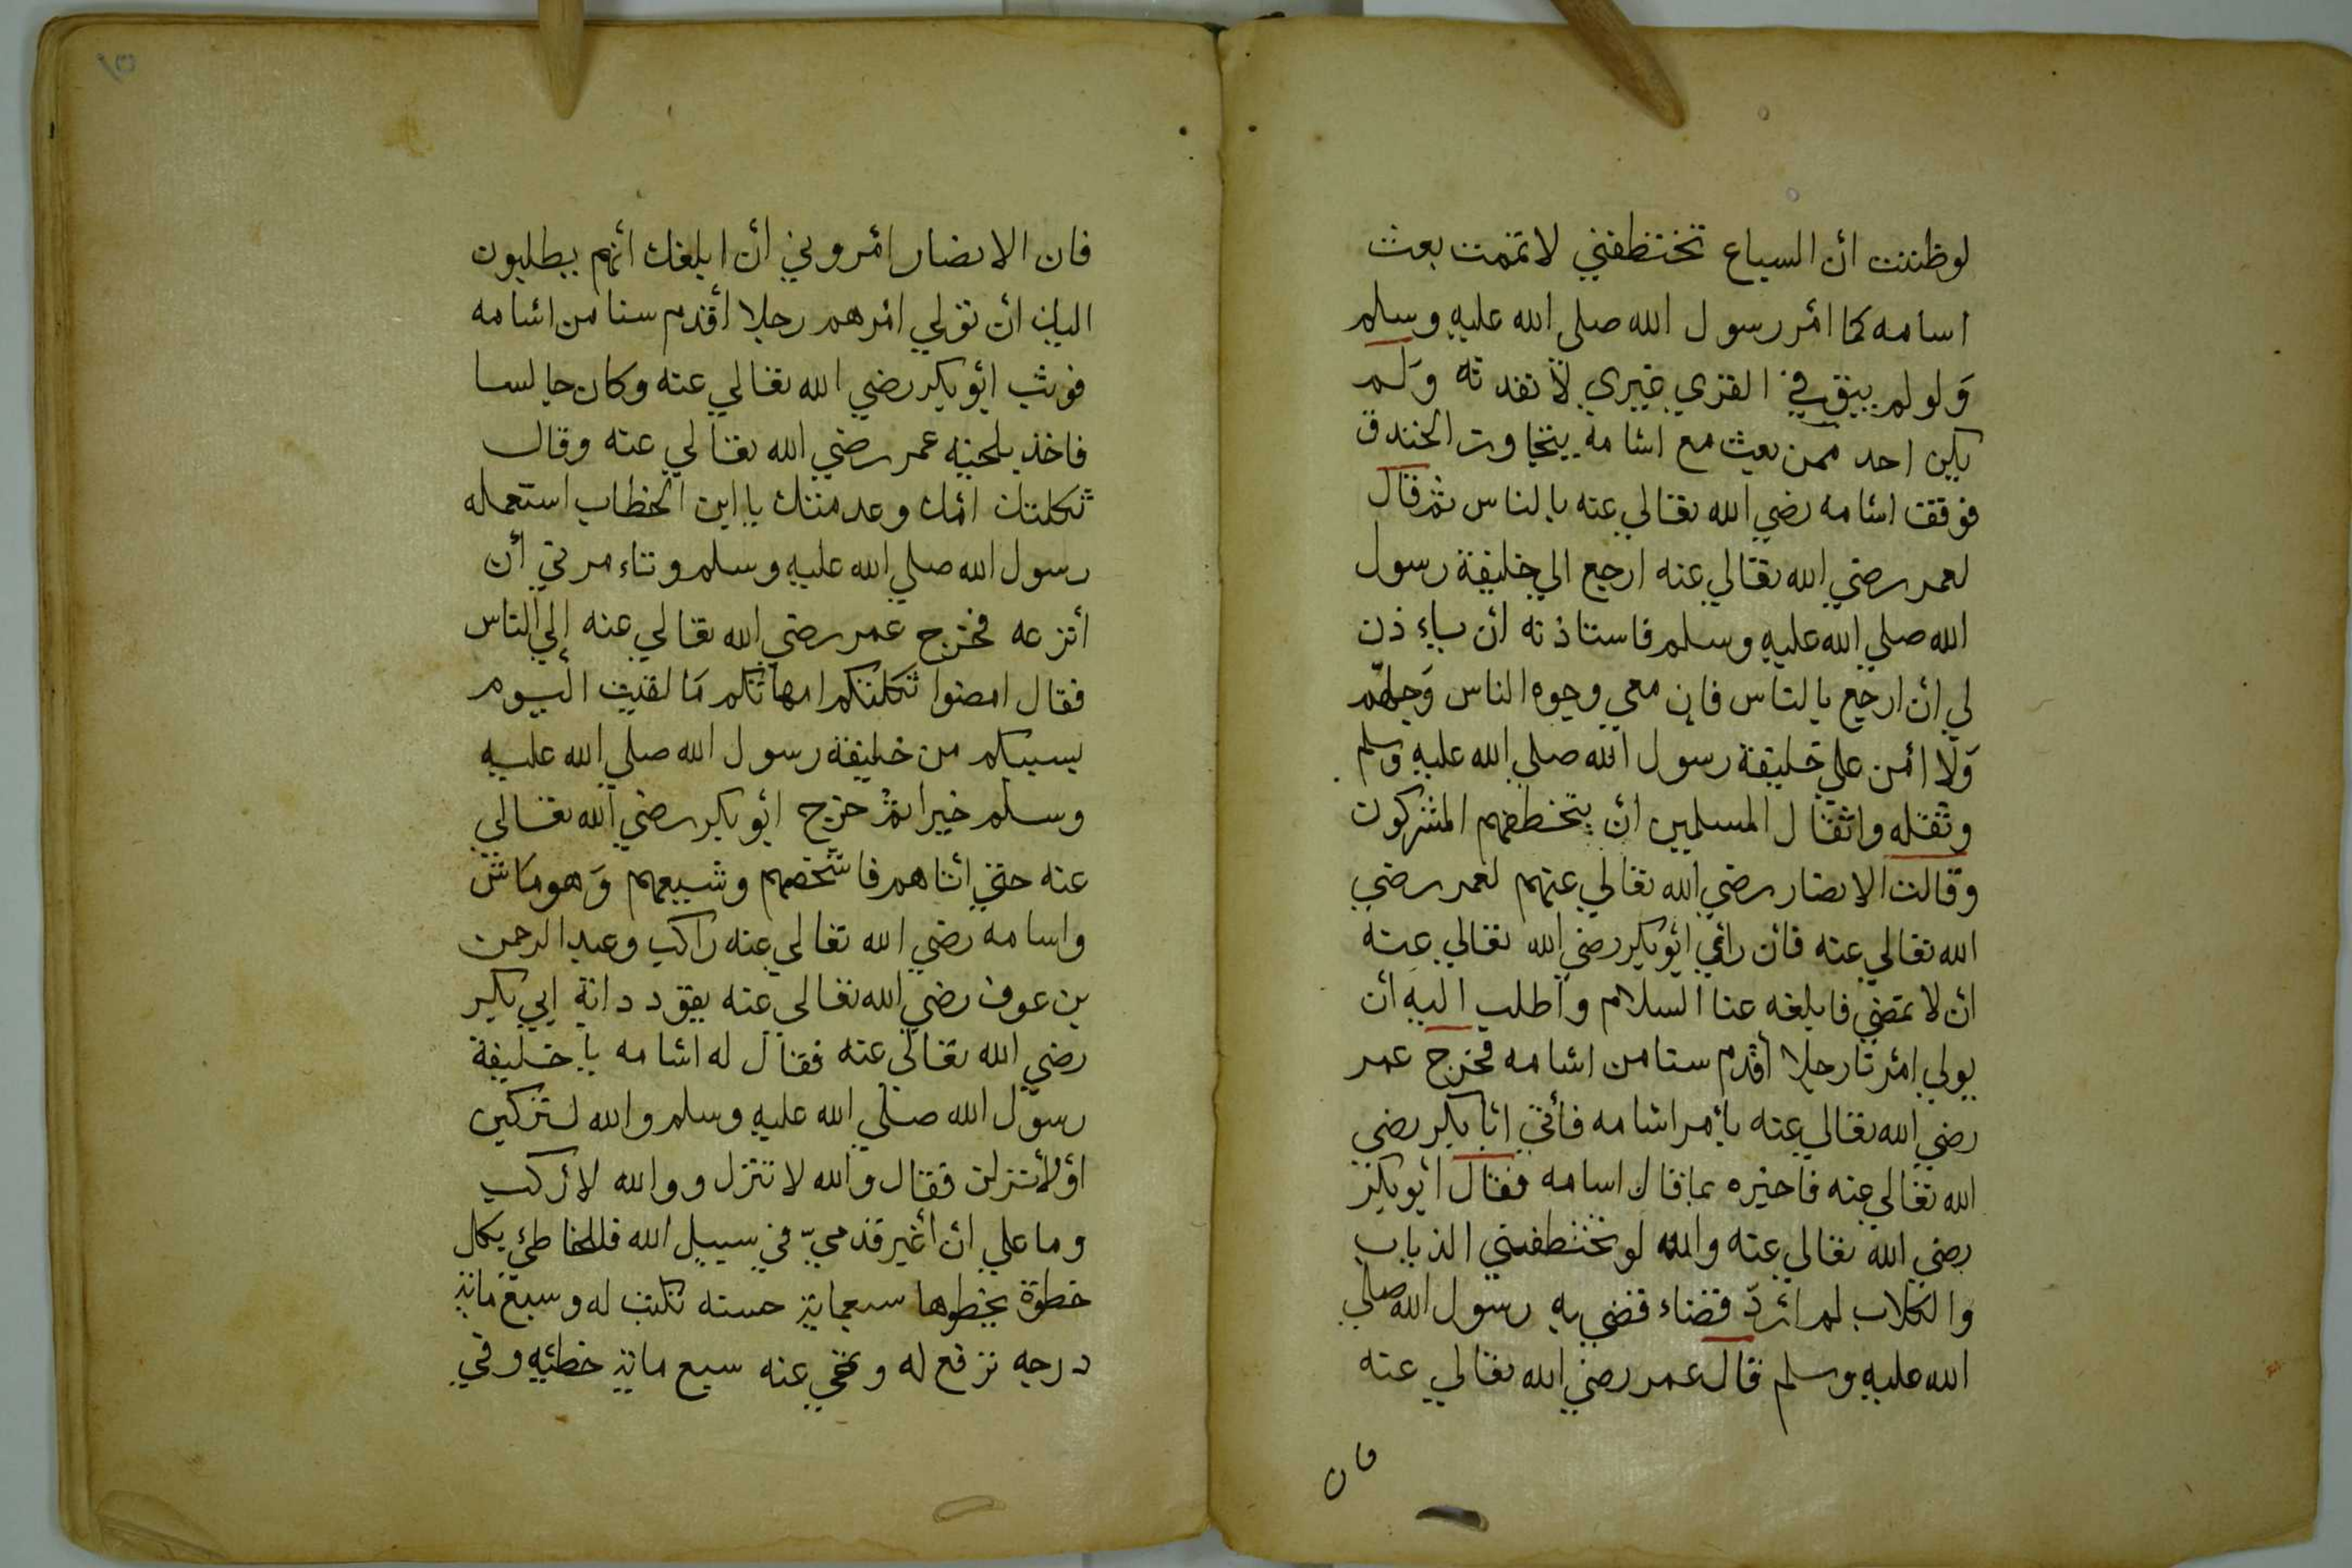 لوظننت أن السباع تختطفني لاتممت بعث
اسامه كما أمر رسول الله صلى الله عليه وسلم
وَلو لم يبق في القري غيري لأنفدته وَلم
يكن احد ممن بعث مع اسامه يتجاوز الخندق
فوقفت اسامه رضي الله تعالي عنه بالناس ثم قال
لعمر رضي الله تعالي عنه ارجع الي خليفة رسول
الله صلي الله عليه وسلم فاستاذنه أن ياءذن
لي أن ارجع بالناس فإن معي وجوه الناس وَجلهّم
وَلا امن علي خليفة رسول الله صلي الله عليه وسلم
وثقله واثقال المسلمين أن يتخطفهم المشركون
وقالت الانصار رضي الله تعالي عنهم لعمر رضي
الله تعالي عنه فان رائي أبو بكر رضي الله تعالي عنه
أن لا نمضي فابلغه عنا السلام واطلب اليه أن
يولي أمرنا رجلا أقدم سنا من اسامه فخرج عمر
رضي الله تعالي عنه بأمر اسامه فأتي أبا بكر رضي
الله تعالي عنه فاخبره بما قال اسامه فقال أبو بكر
رضي الله تعالي عنه والله لو تختطفني الذياب
والكلاب لم اردّ قضاء قضي به رسول الله صلي
الله عليه وسلم قال عمر رضي الله تعالي عنه
فان
فان الانصار أمروني أن ابلغك أنهم يطلبون
اليك أن تولي أمرهم رجلا أقدم سنا من اسامه
فوثب أبو بكر رضي الله تعالي عنه وكان جالسا
فاخذ بلحيه عمر رضي الله تعالي عنه وقال
ثكلتك امك وعدمتك يا ابن الخطاب استعمله
رسول الله صلي الله عليه وسلم وتاءمرني أن
أنزعه فخرج عمر رضي الله تعالي عنه إلي الناس
فقال امضوا ثكلتكم امهاتكم مَا لقيت اليوم
بسببكم من خليفة رسول الله صلي الله عليه
وسلم خيرا ثم خرج أبو بكر رضي الله تعالي
عنه حتي اتاهم فاشخصهم وشيعهم وَهو مَاش
واسامه رضي الله تعالي عنه راكب وعبد الرحمن
بن عوف رضي الله تعالي عنه يقود دابة ابي بكر
رضي الله تعالي عنه فقال له اسامه يا خليفة
رسول الله صلي الله عليه وسلم والله لتركبن
أو لأنزلن فقال والله لا تنزل ووالله لا أركب
وما علي أن أغبر قدميّ في سبيل الله فللخاطئ بكل
خطوة يخطوها سبعماية حسنه تكتب له وسبع ماية
درجه ترفع له وتمحي عنه سبع ماية خطئيه وفي